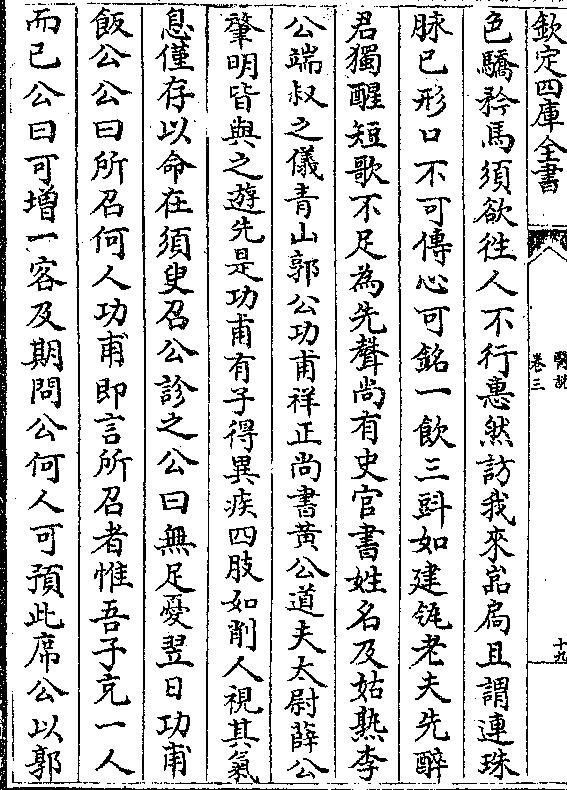 欽定四庫全書
醫說
卷三
十九
色驕矜馬須欲徃人不行惠然訪我來嵓扃且謂連珠
脉已形口不可傳心可銘一飲三㪷如建瓴老夫先醉
君獨醒短歌不足為先聲尚有史官書姓名及姑熟李
公端叔之儀青山郭公功甫祥正尚書黄公道夫太尉薛公
肇明皆與之遊先是功甫有子得異疾四肢如削人視其氣
息僅存以命在須臾召公診之公曰無足憂翌日功甫
飯公公曰所召何人功甫即言所召者惟吾子充一人
而已公曰可增一客及期問公何人可預此席公以郭